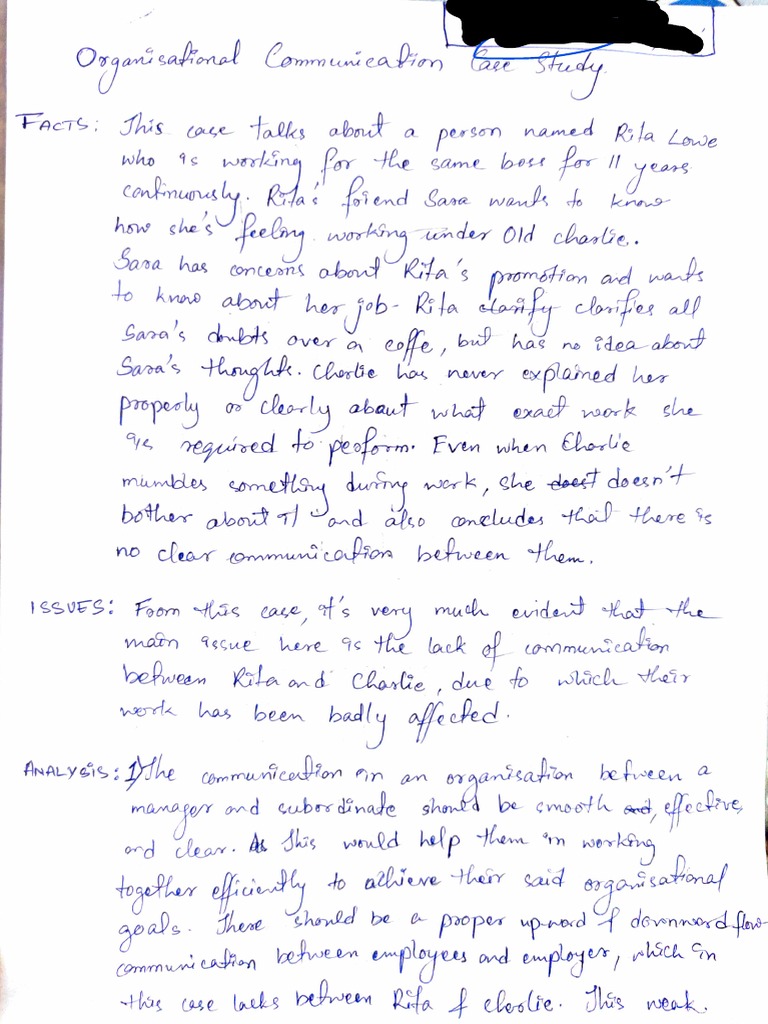 Organisational Communication Case Study.
FACTS: This case talks about a person named Rita Lowe
who is working for the same boss for 11 years
continuously. Rita's friend Sara wants to know
how she's feeling working under Old Charlie.
Sara has concerns about Rita's promotion and wants
to know about her job - Rita clarify clarifies all
Sara's doubts over a coffe, but has no idea about
Sara's thoughts. Charlie has never explained her
properly or clearly about what exact work she
is required to perform. Even when Charlie
mumbles something during work, she doest doesn't
bother about it and also concludes that there is
no clear communication between them.
ISSUES: From this case, it's very much evident that the
main issue here is the lack of communication
between Rita and Charlie, due to which their
work has been badly affected.
ANALYSIS: 1) The communication in an organisation between a
manager and subordinate should be smooth and, effective,
and clear. As This would help them in working
together efficiently to achieve their said organisational
goals. There should be a proper upward & downward flow
communication between employees and employer, which in
this case lacks between Rita & Charlie. This weak.